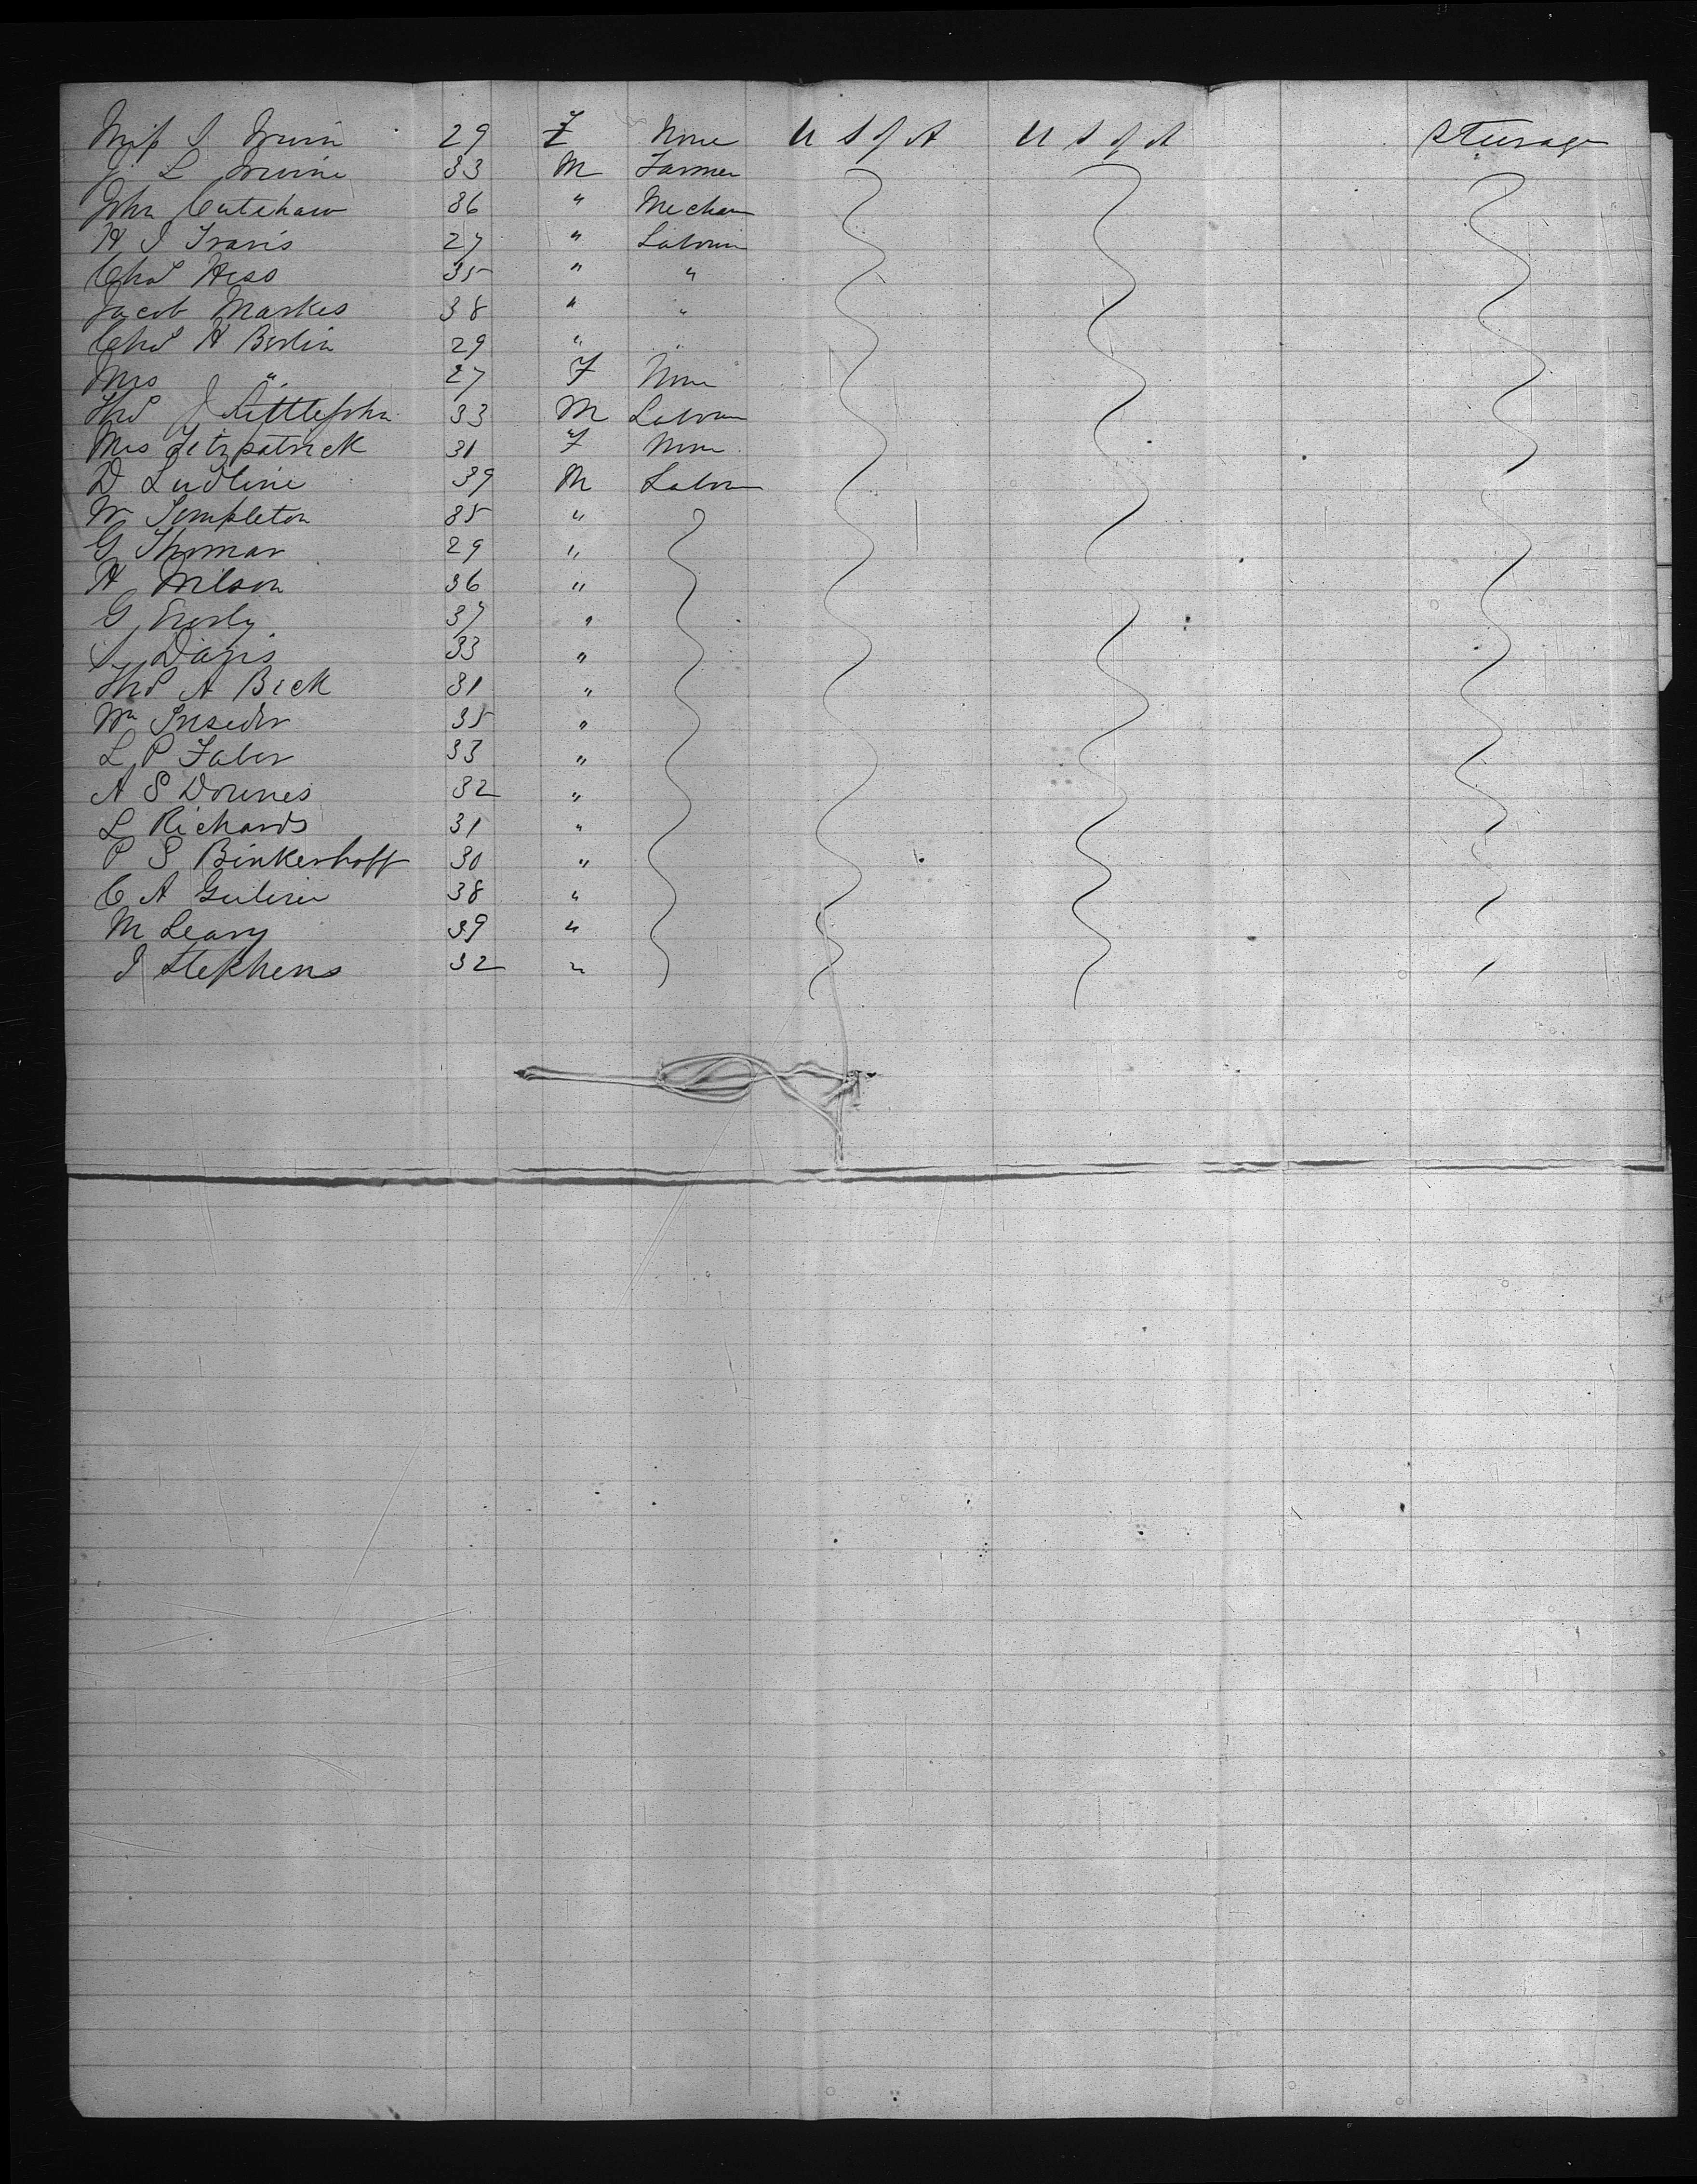 Miss S Irwin 29 F None U S of A U S of A Steerage
J. L Irvine 33 M Farmer
John Cutshaw 36 " Mechan
H I Travis 27 " Labour
Chas Hess 35 " "
Jacob Markes 38 " "
Chas H Berlin 29 " "
Mrs " 27 F None
Thos J Littlejohn 33 M Labour
Mrs Fitzpatrick 31 F None
D Ludline 39 M Labour
W Templeton 35 "
G Thomas 29 "
H Wilson 36 "
G 37 "
S Davis 33 "
Thos A Beck 31 "
Wm 35 "
L P Faber 33 "
A S Downes 32 "
L Richards 31 "
P S Binkerhoff 30 "
C A 38 "
M Leary 39 "
J Stephens 32 "